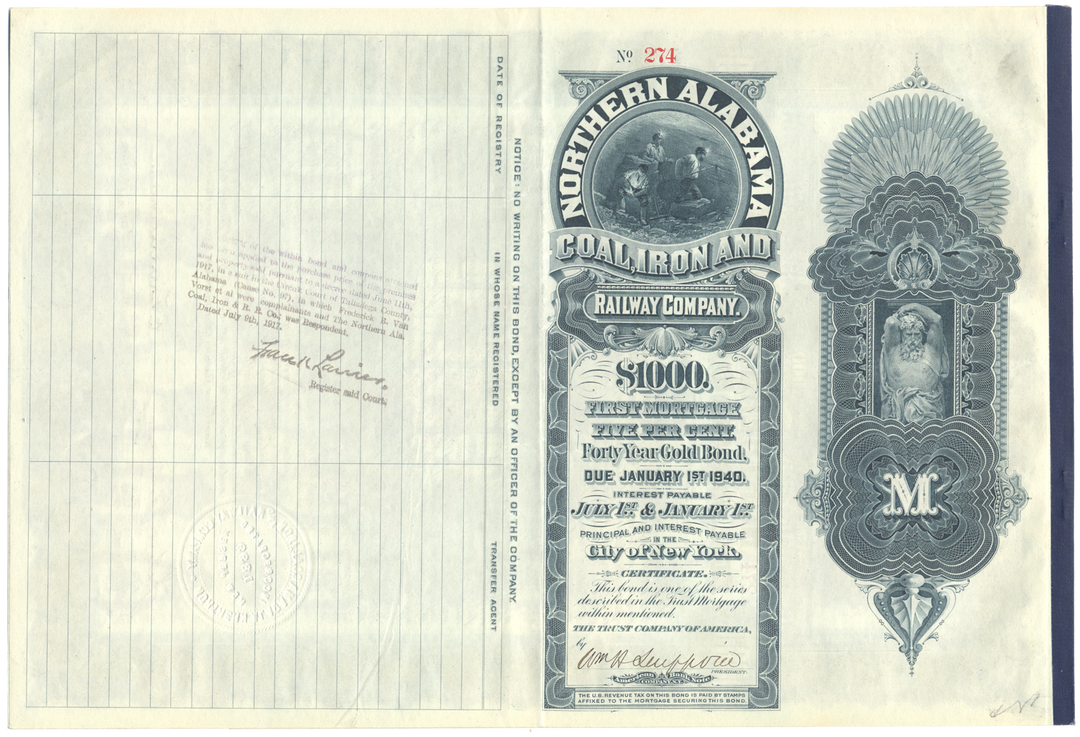 DATE OF REGISTRY
IN WHOSE NAME REGISTERED
TRANSFER AGENT
NOTICE: NO WRITING ON THIS BOND, EXCEPT BY AN OFFICER OF THE COMPANY.
of the within bond and coupons
to the purchase price of
and property sold pursuant to decree dated June 11th,
1917, in a suit in the Circuit Court of Talladega County,
Alabama (Cause No. 97), in which Frederick B. Van
Vorst et al were complainants and The Northern Ala.
Coal, Iron & R. R. Co., was Respondent.
Dated July 9th, 1917.
Register said Court.
No 274
NORTHERN ALABAMA
COAL, IRON AND
RAILWAY COMPANY.
$1000.
FIRST MORTGAGE
FIVE PER CENT.
Forty Year Gold Bond,
DUE JANUARY 1ST 1940.
INTEREST PAYABLE
JULY 1ST & JANUARY 1ST
PRINCIPAL AND INTEREST PAYABLE
IN THE
City of New York.
CERTIFICATE.
This bond is one of the series
described in the Trust Mortgage
within mentioned.
THE TRUST COMPANY OF AMERICA,
by
PRESIDENT.
American Bank Note
COMPANY
THE U.S. REVENUE TAX ON THIS BOND IS PAID BY STAMPS
AFFIXED TO THE MORTGAGE SECURING THIS BOND.
M